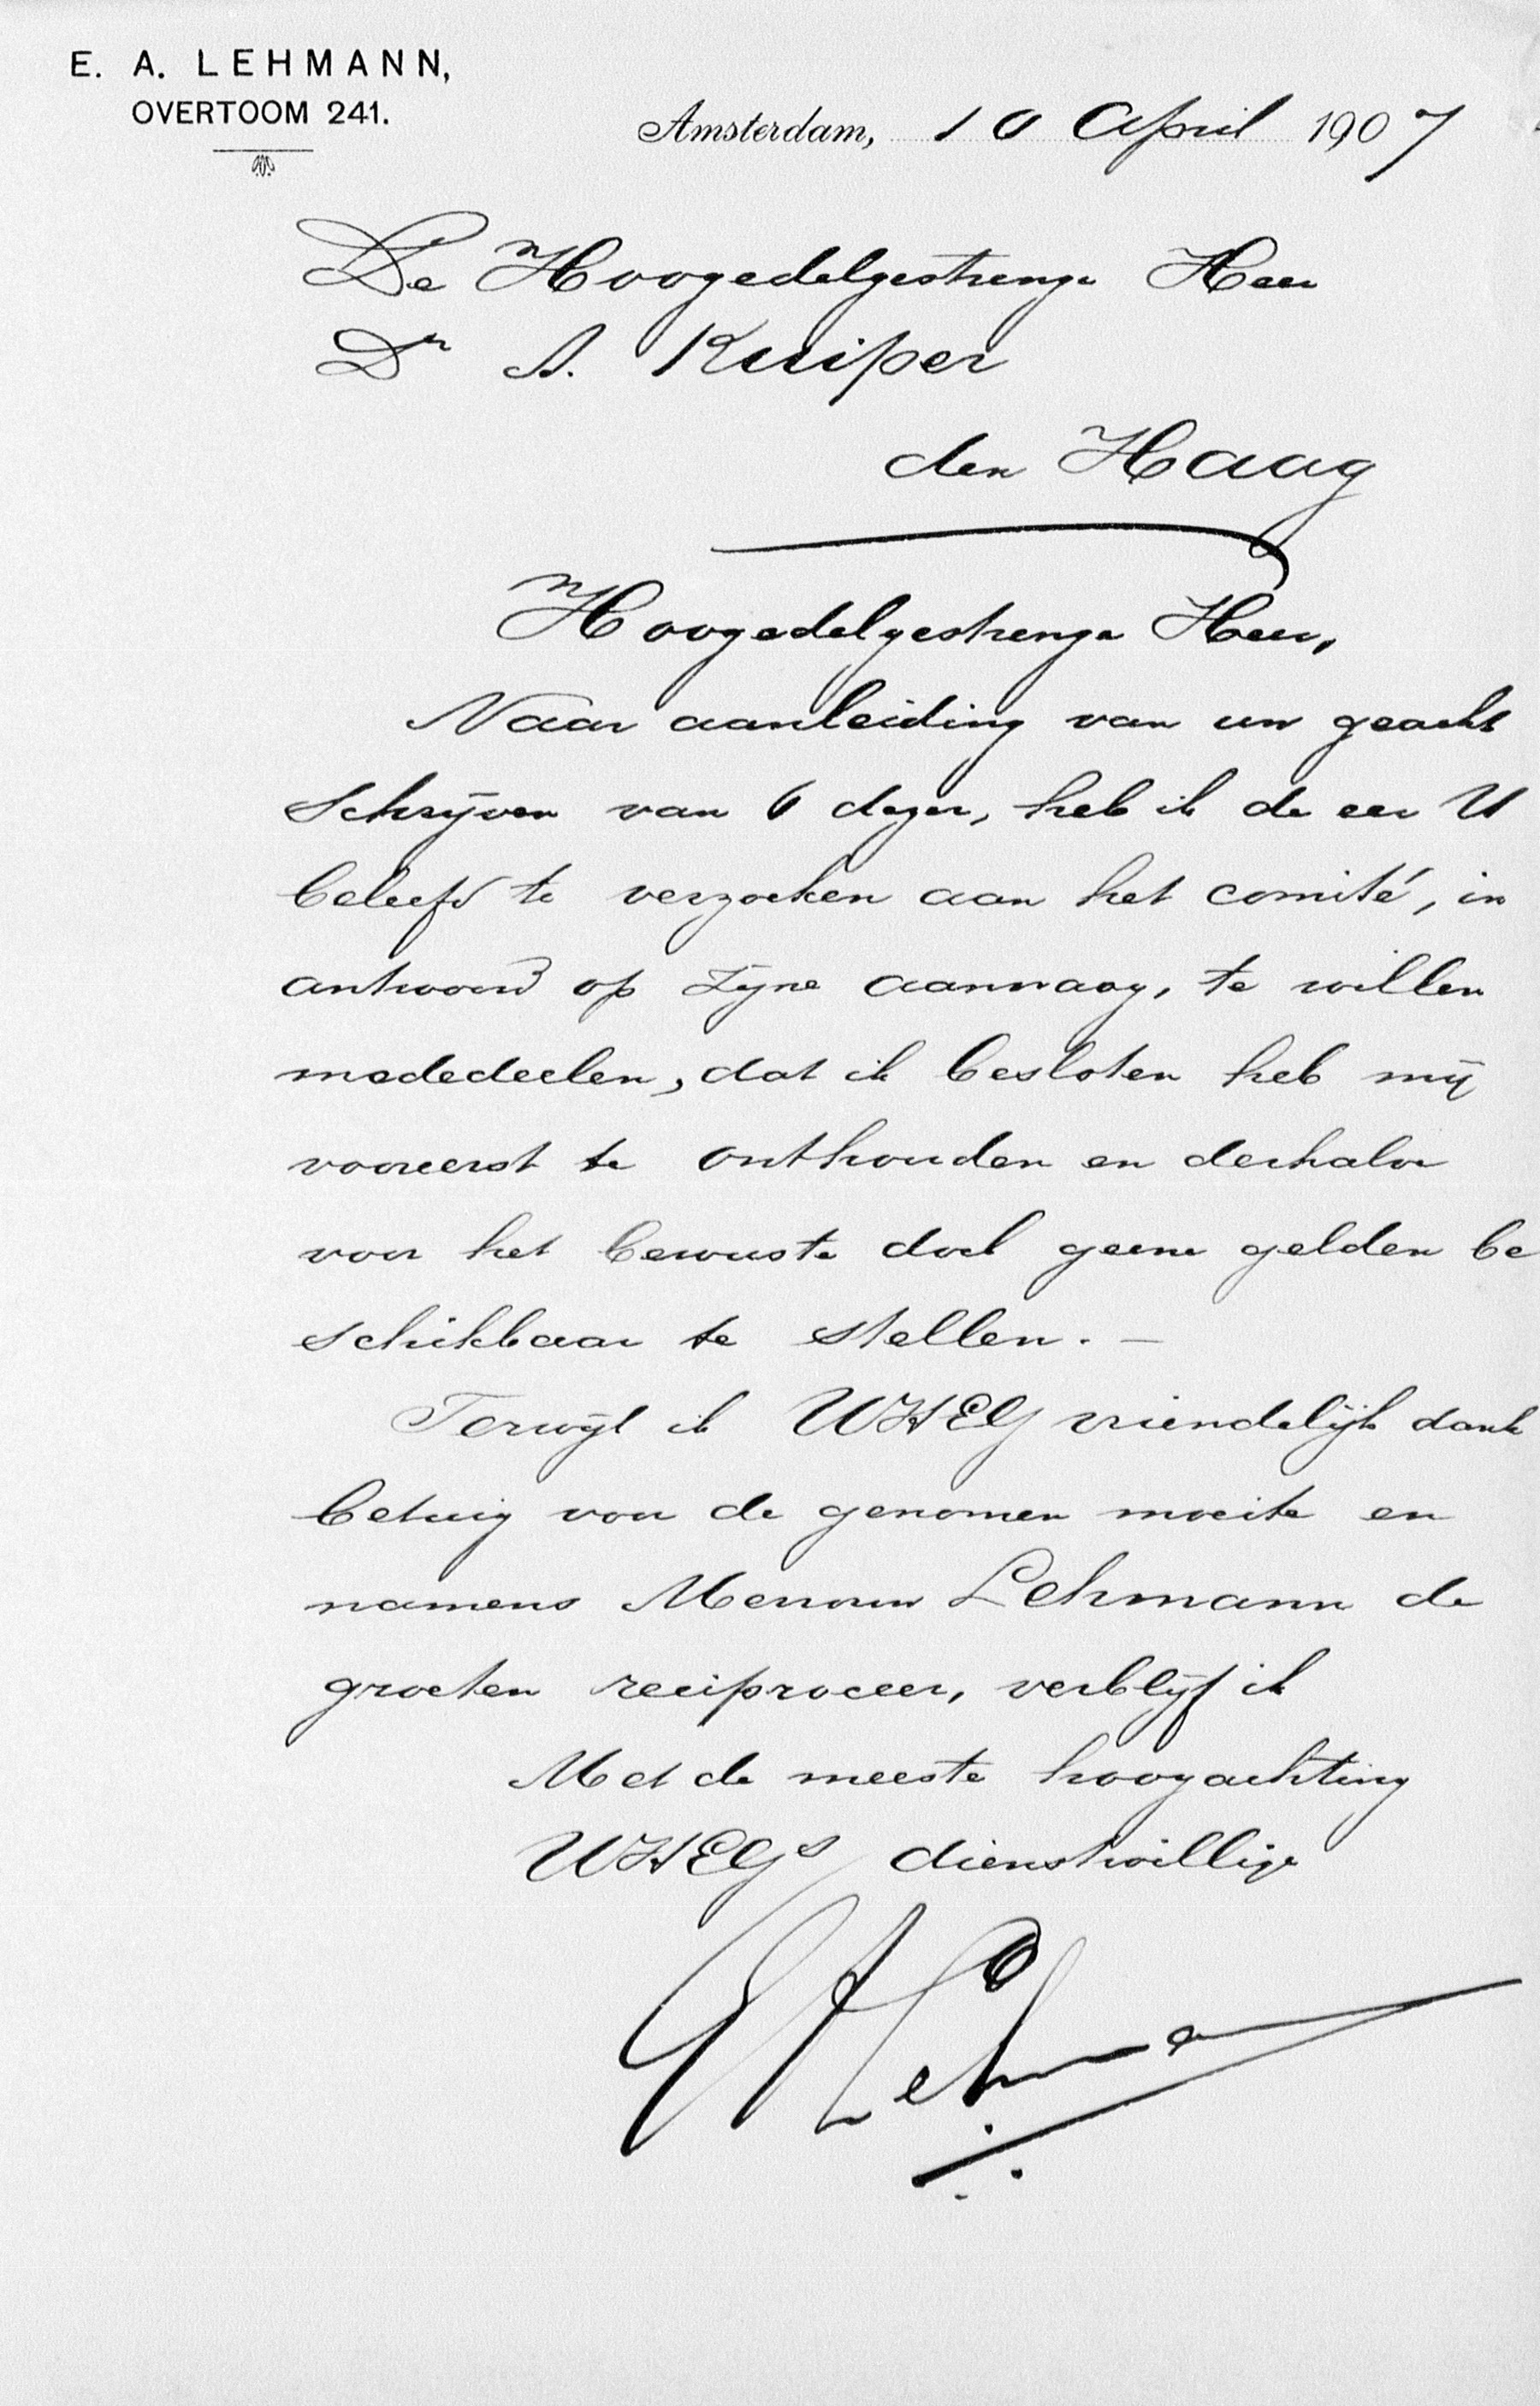 E. A. LEHMANN,
OVERTOOM 241.
Amsterdam, 10 April 1907
De Hoogedelgestrenge Heer
Dr A. Kuiper
den Haag
Hoogedelgestrenge Heer,
Naar aanleiding van uw geacht
schrijven van 6 dezer, heb ik de eer U
beleefd te verzoeken aan het comité, in
antwoord op zijne aanvraag, te willen
mededeelen, dat ik besloten heb mij
vooreerst te onthouden en derhalve
voor het bewuste doel geene gelden be
schikbaar te stellen. —
Terwijl ik UHEG vriendelijk dank
betuig voor de genomen moeite en
namens Mevrouw Lehmann de
groeten reciproceer, verblijf ik
Met de meeste hoogachting
UHEGs dienstwillige
E A Lehmann